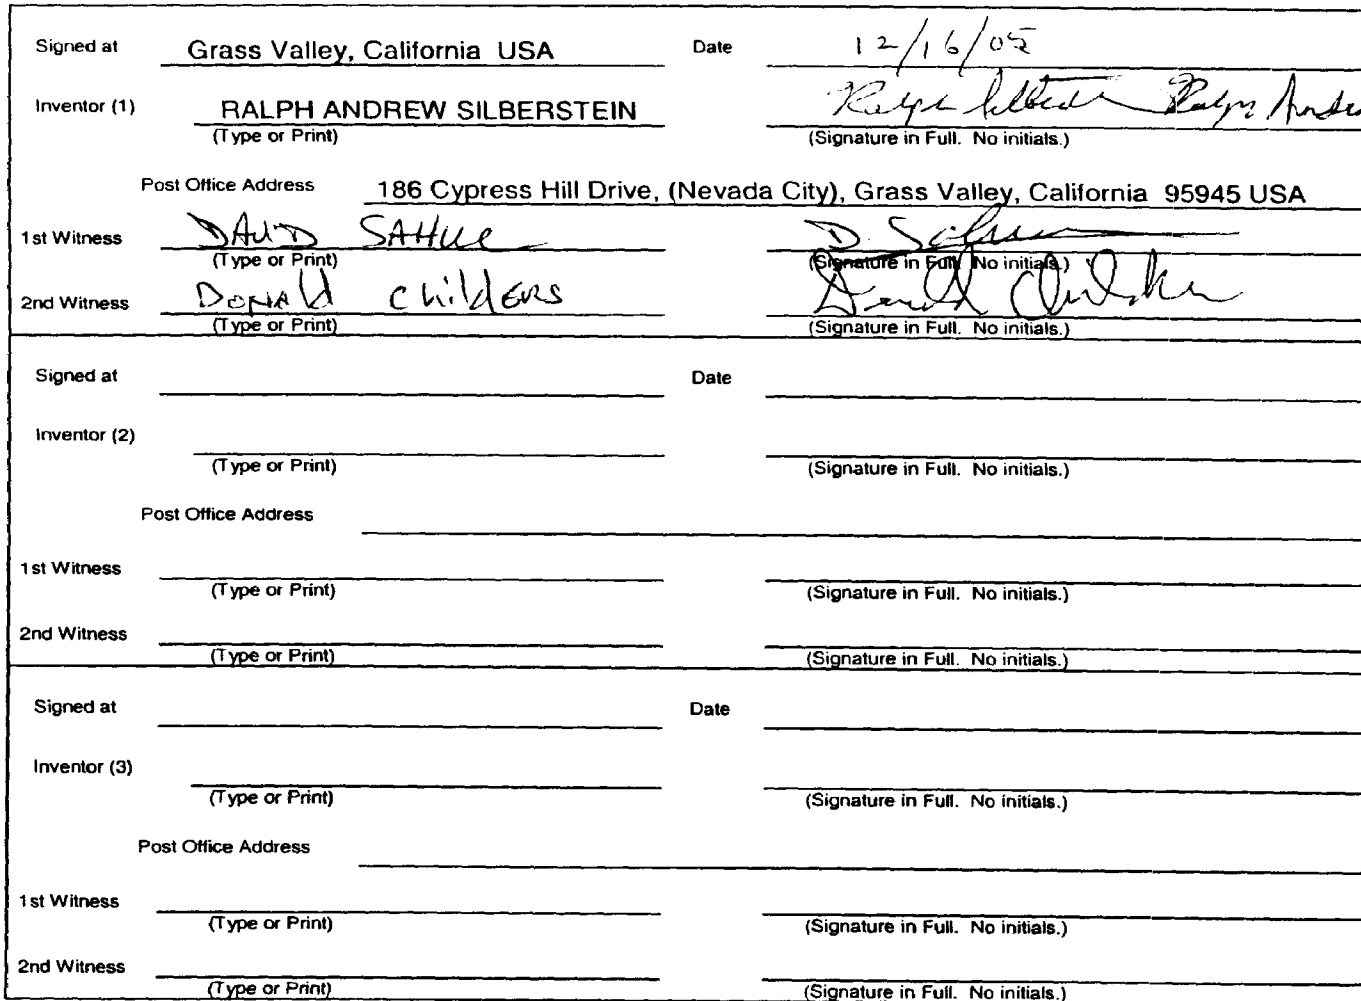 Signed at Grass Valley, California USA Date 12/16/05
Inventor (1) RALPH ANDREW SILBERSTEIN Ralph
(Type or Print) (Signature in Full. No initials.)
Post Office Address 186 Cypress Hill Drive, (Nevada City), Grass Valley, California 95945 USA
1st Witness DAVID D.
(Type or Print) (Signature in Full. No initials.)
2nd Witness Donald Childers Donald Childers
(Type or Print) (Signature in Full. No initials.)
Signed at Date
Inventor (2)
(Type or Print) (Signature in Full. No initials.)
Post Office Address
1st Witness
(Type or Print) (Signature in Full. No initials.)
2nd Witness
(Type or Print) (Signature in Full. No initials.)
Signed at Date
Inventor (3)
(Type or Print) (Signature in Full. No initials.)
Post Office Address
1st Witness
(Type or Print) (Signature in Full. No initials.)
2nd Witness
(Type or Print) (Signature in Full. No initials.)